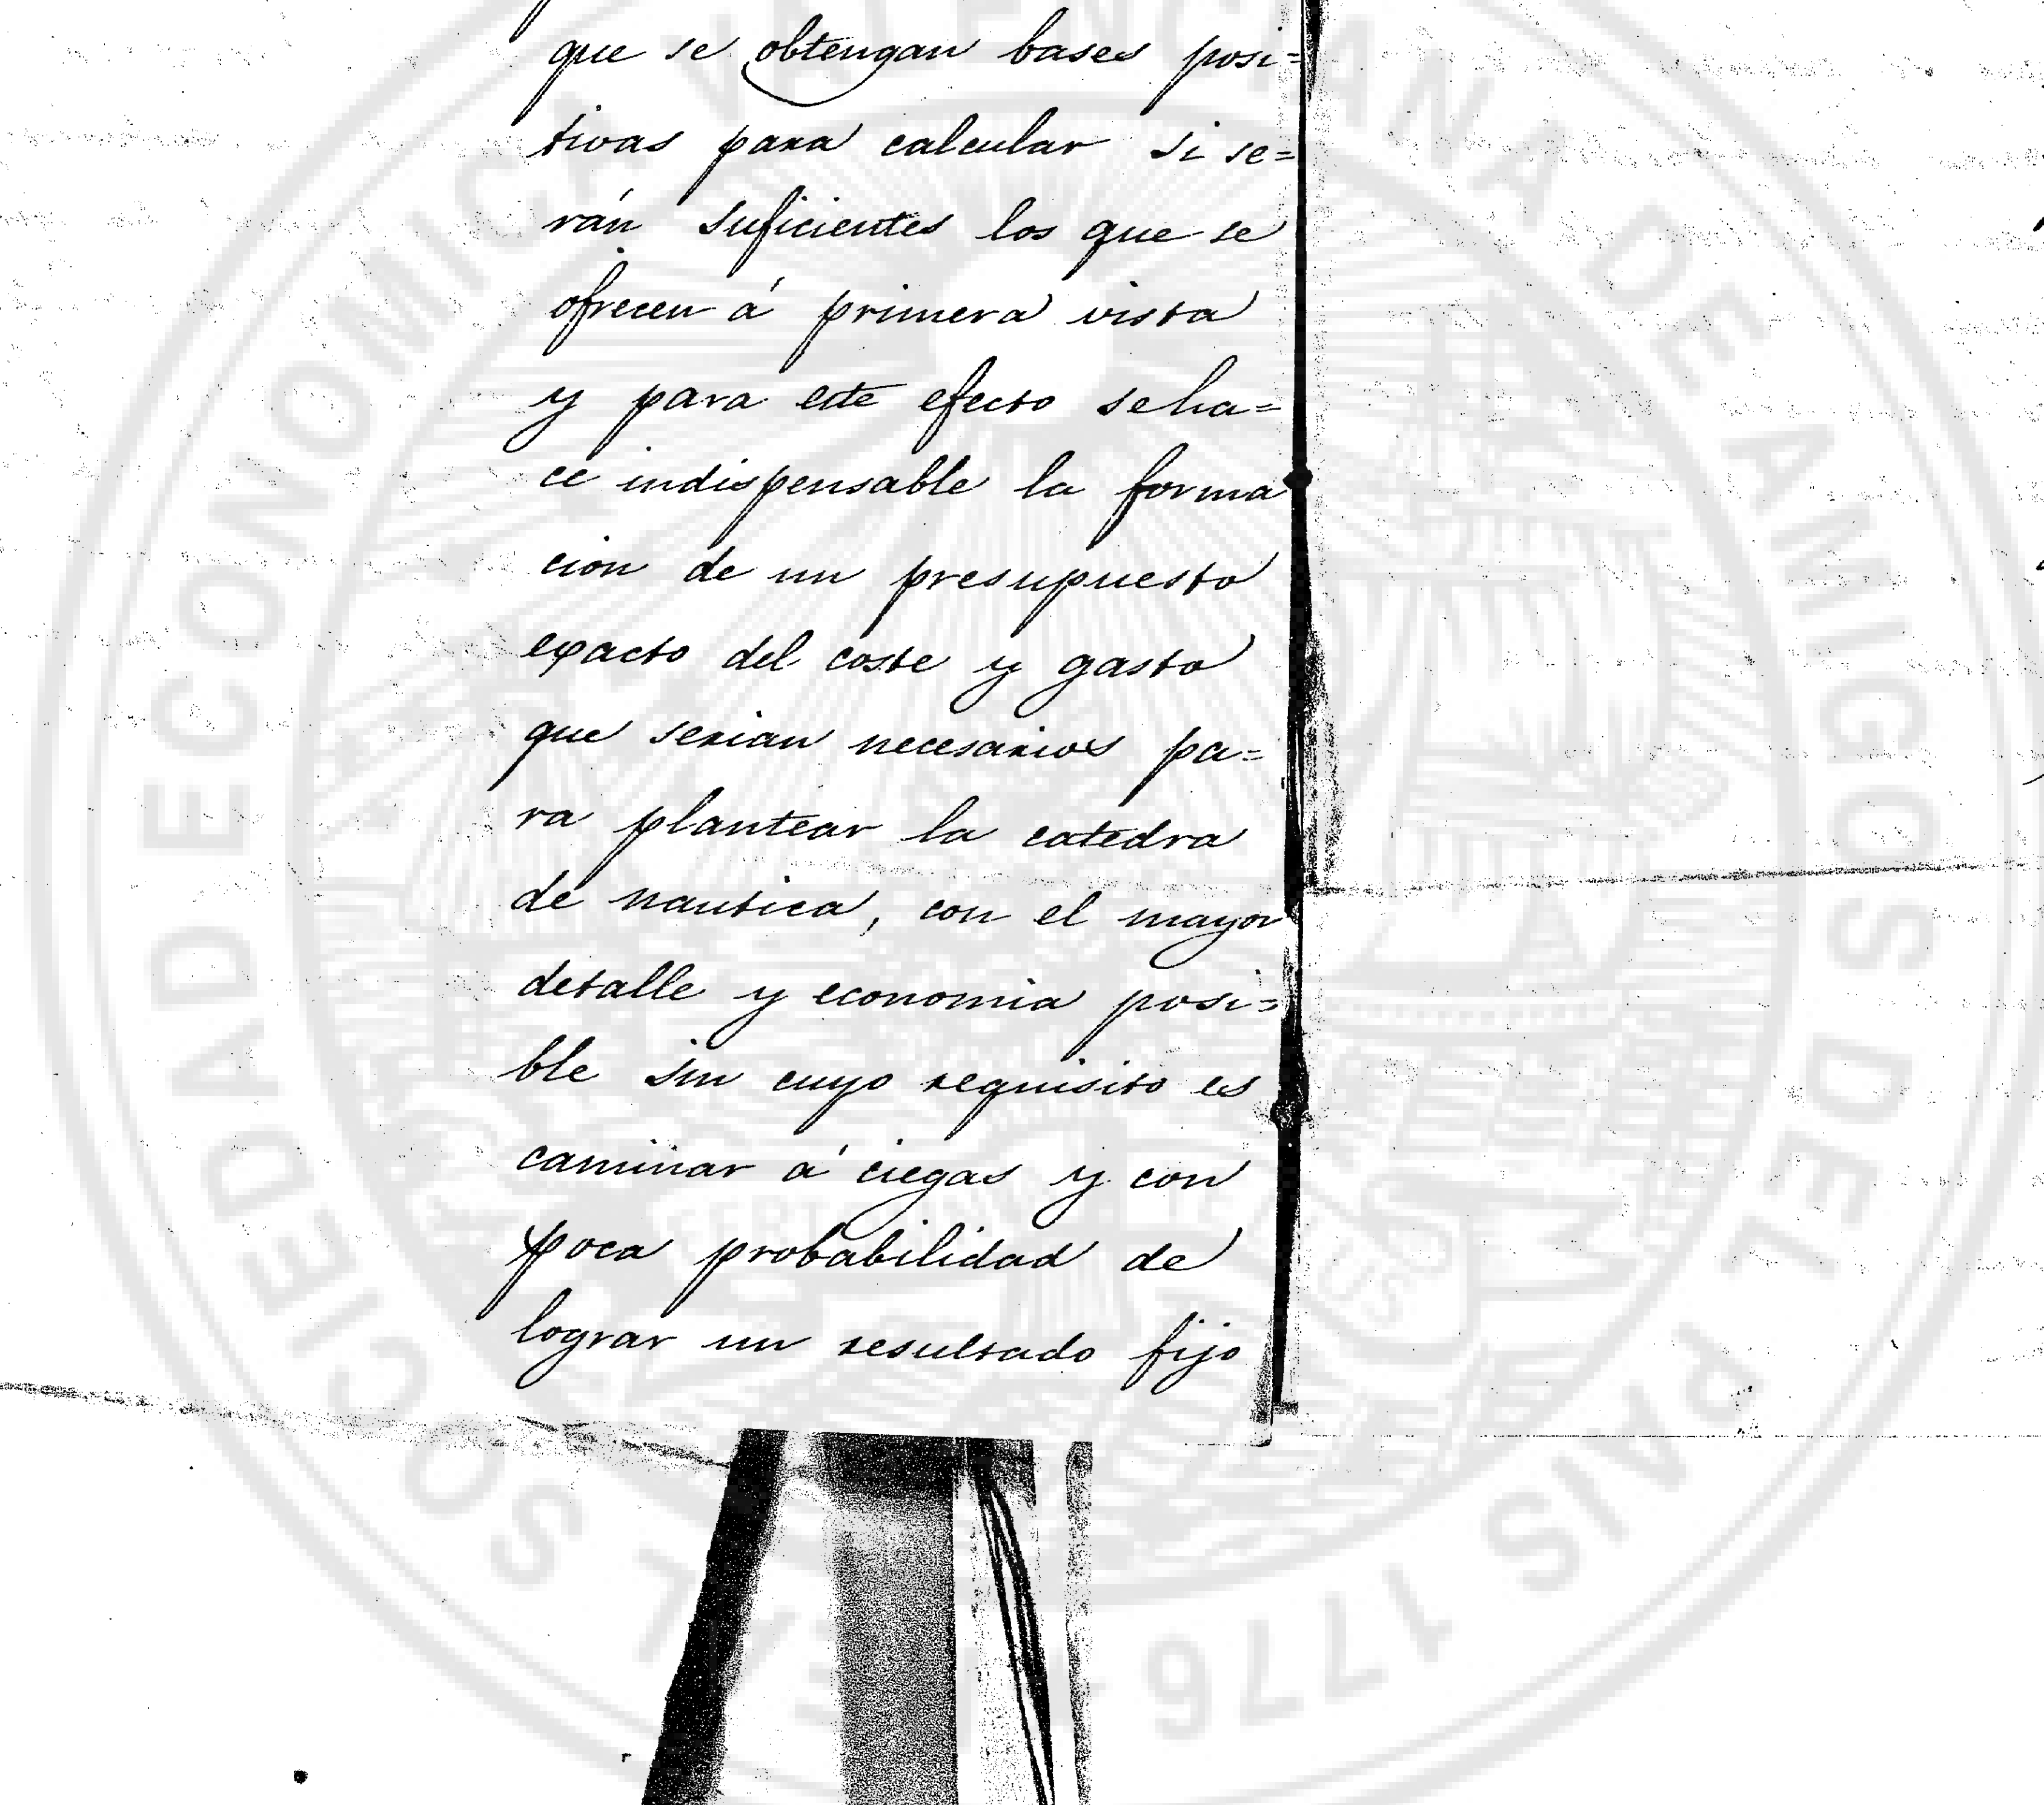 que se obtengan bases posi=
tivas para calcular si se=
rán suficientes los que se
ofrecen á primera vista
y para este efecto se ha=
ce indispensable la forma
cion de un presupuesto
exacto del coste y gasto
que serian necesarios pa=
ra plantear la catedra
de nautica, con el mayor
detalle y economia posi=
ble sin cuyo requisito es
caminar á ciegas y con
poca probabilidad de
lograr un resultado fijo